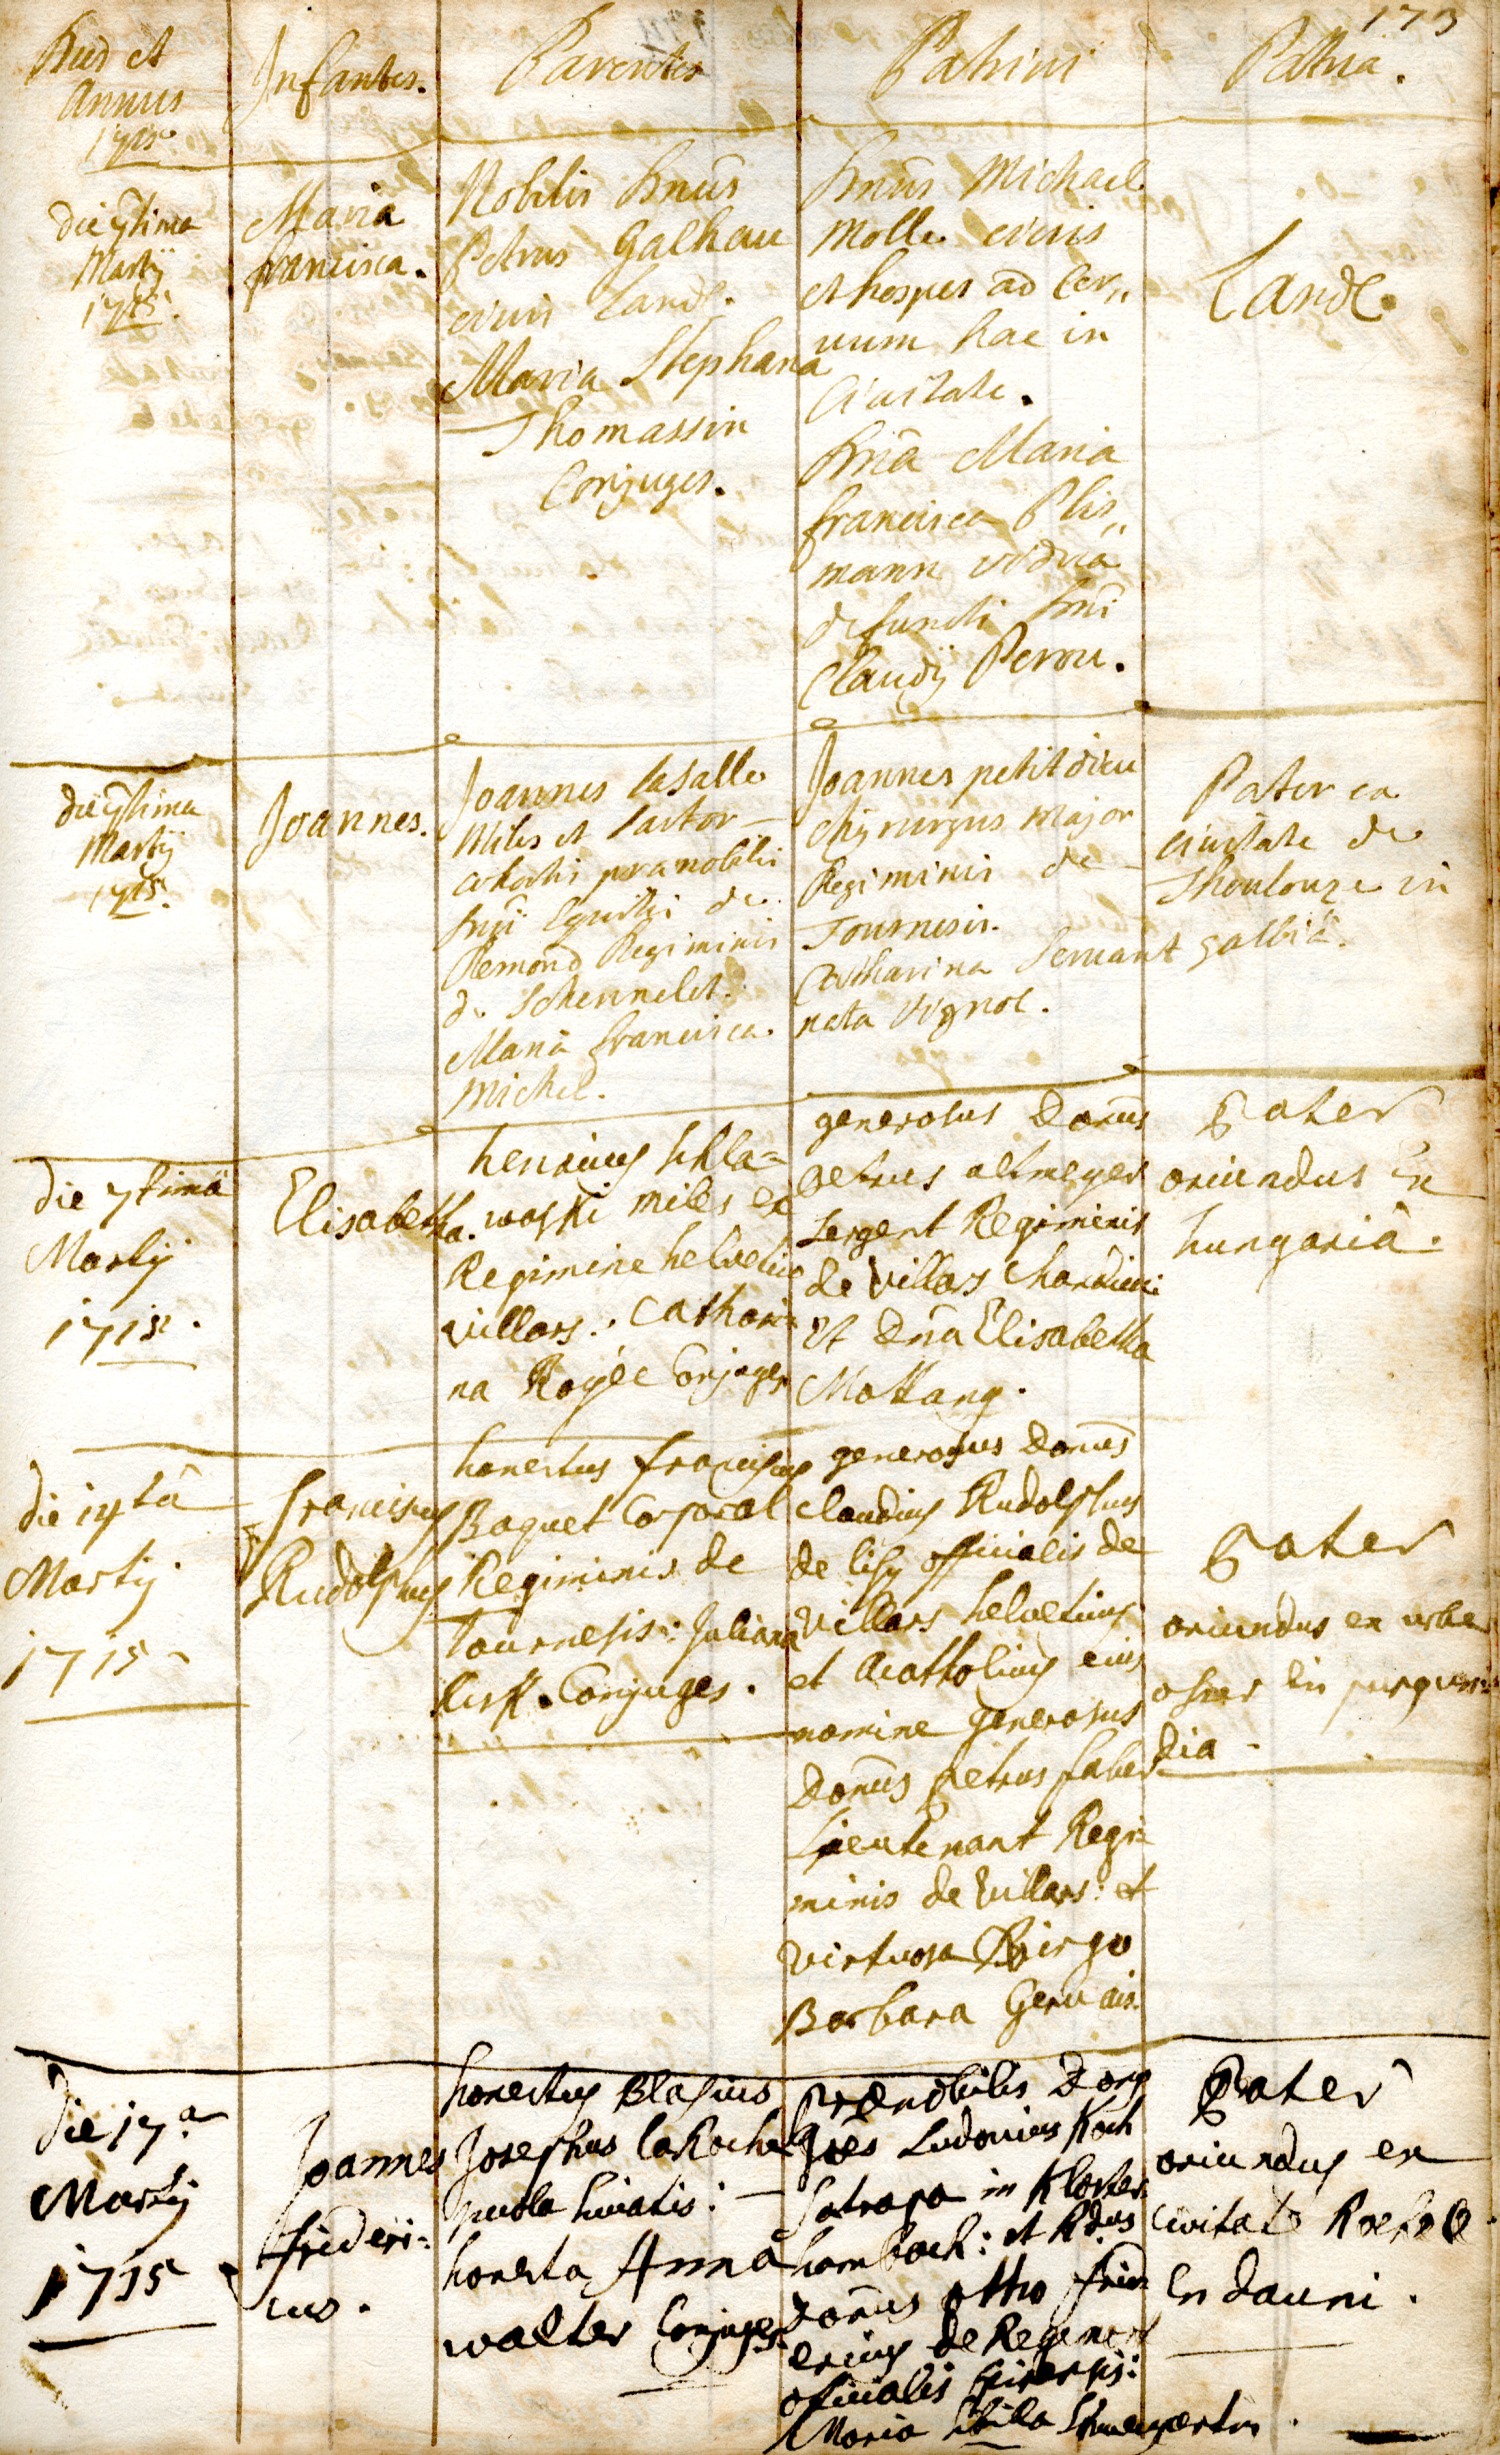 173
Dies et
Annus
1715.
Infantes.
Parentes
Patrini
Patria.
die 7tima
Martij
1715.
Maria
francisca.
Nobilis Dnūs
Petrus Galhau
civis Landē.
Maria Stephana
Thomassin
Conjuges.
Dnūs Michael
Molle civis
et hospes ad Cer„
uum hac in
Ciuitate.
Dnā Maria
francisca Plis„
mann vidua
defuncti Dnī
Claudij Perou.
Landē.
die 7tima
Martij
1715.
Joannes.
Joannes lasalle
Miles et sartor
cohortis pranobilis
Dnī Equitis de
Remond Regiminis
de Schennelet.
Maria francisca
Michel.
Joannes petitdieu
chyrurgus major
Regiminis de
Tournesis.
Catharina Seruant
nata Vignol.
Pater ex
ciuitate de
Thoulouze in
galliâ.
die 7timâ
Martij
1715.
Elisabetha.
henricus schla=
woski miles ex
Regimine helvetico
villars: Cathari=
na Royée Conjuges
generosus Donūs
petrus altmeyer
sergent Regiminis
de villars chandieu:
et Dnā Elisabetha
Mottang.
Pater
oriundus in
hungariâ.
die 14tâ
Martij
1715.
franciscus
Rudolphus
honestus franciscus
Baquet Corporal
Regiminis de
Tournesis: Juliana
Conjuges.
generosus Donūs
Claudius Rudolphus
de officialis de
villars helvetius
et Acattolius eius
nomine generosus
Donūs petrus faber
Lieutenant Regi=
minis de villars: et
virtuosa Virgo
Barbara Gervais.
Pater
oriundus ex urbe
in purgun=
dia.
die 17.a
Martij
1715
Joannes
frideri=
cus.
honestus Blasius
Josephus laRoche
honesta Anna
walter Conjuges.
Prænobilis Dong
Joes Ludovicus Koch
satrapa in Kloster
hornbach: et Rdus
Donūs otto frid=
ericus de Regener
oficialis
Maria sibilla
Pater
oriundus ex
civitate
in dauni.